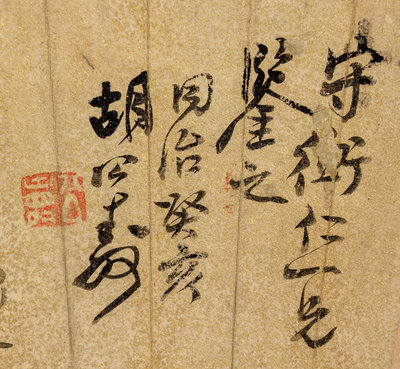 守仁兄
鑒之
同治癸亥
胡公壽